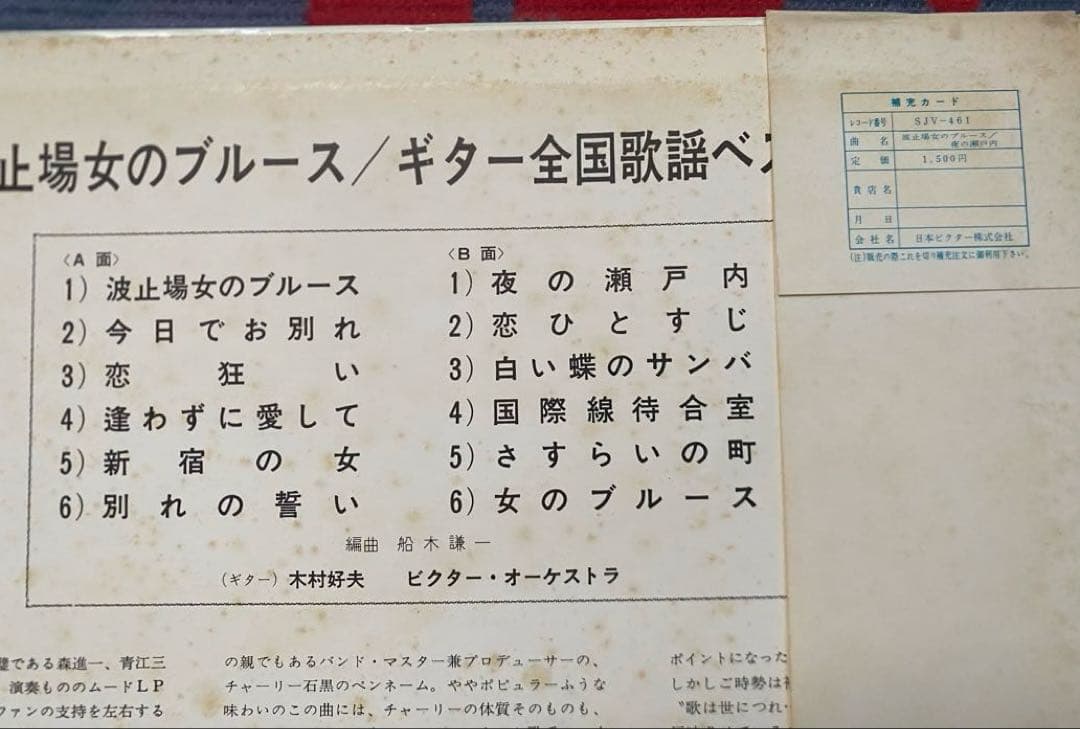 止場女のブルース/ギター全国歌謡ベス
〈A面〉
1) 波止場女のブルース
2) 今日でお別れ
3) 恋狂い
4) 逢わずに愛して
5) 新宿の女
6) 別れの誓い
〈B面〉
1) 夜の瀬戸内
2) 恋ひとすじ
3) 白い蝶のサンバ
4) 国際線待合室
5) さすらいの町
6) 女のブルース
編曲 船木謙一
(ギター) 木村好夫 ビクター・オーケストラ
補充カード
レコード番号 SJV-461
曲名 波止場女のブルース/夜の瀬戸内
定価 1,500円
貴店名
月日
会社名 日本ビクター株式会社
(注)販売の際これを切り補充注文に御利用下さい。
である森進一、青江三
演奏もののムードLP
ファンの支持を左右する
の親でもあるバンド・マスター兼プロデューサーの、
チャーリー石黒のペンネーム。ややポピュラーふうな
味わいのこの曲には、チャーリーの体質そのものも、
ポイントになった
しかしご時勢は
〝歌は世につれ